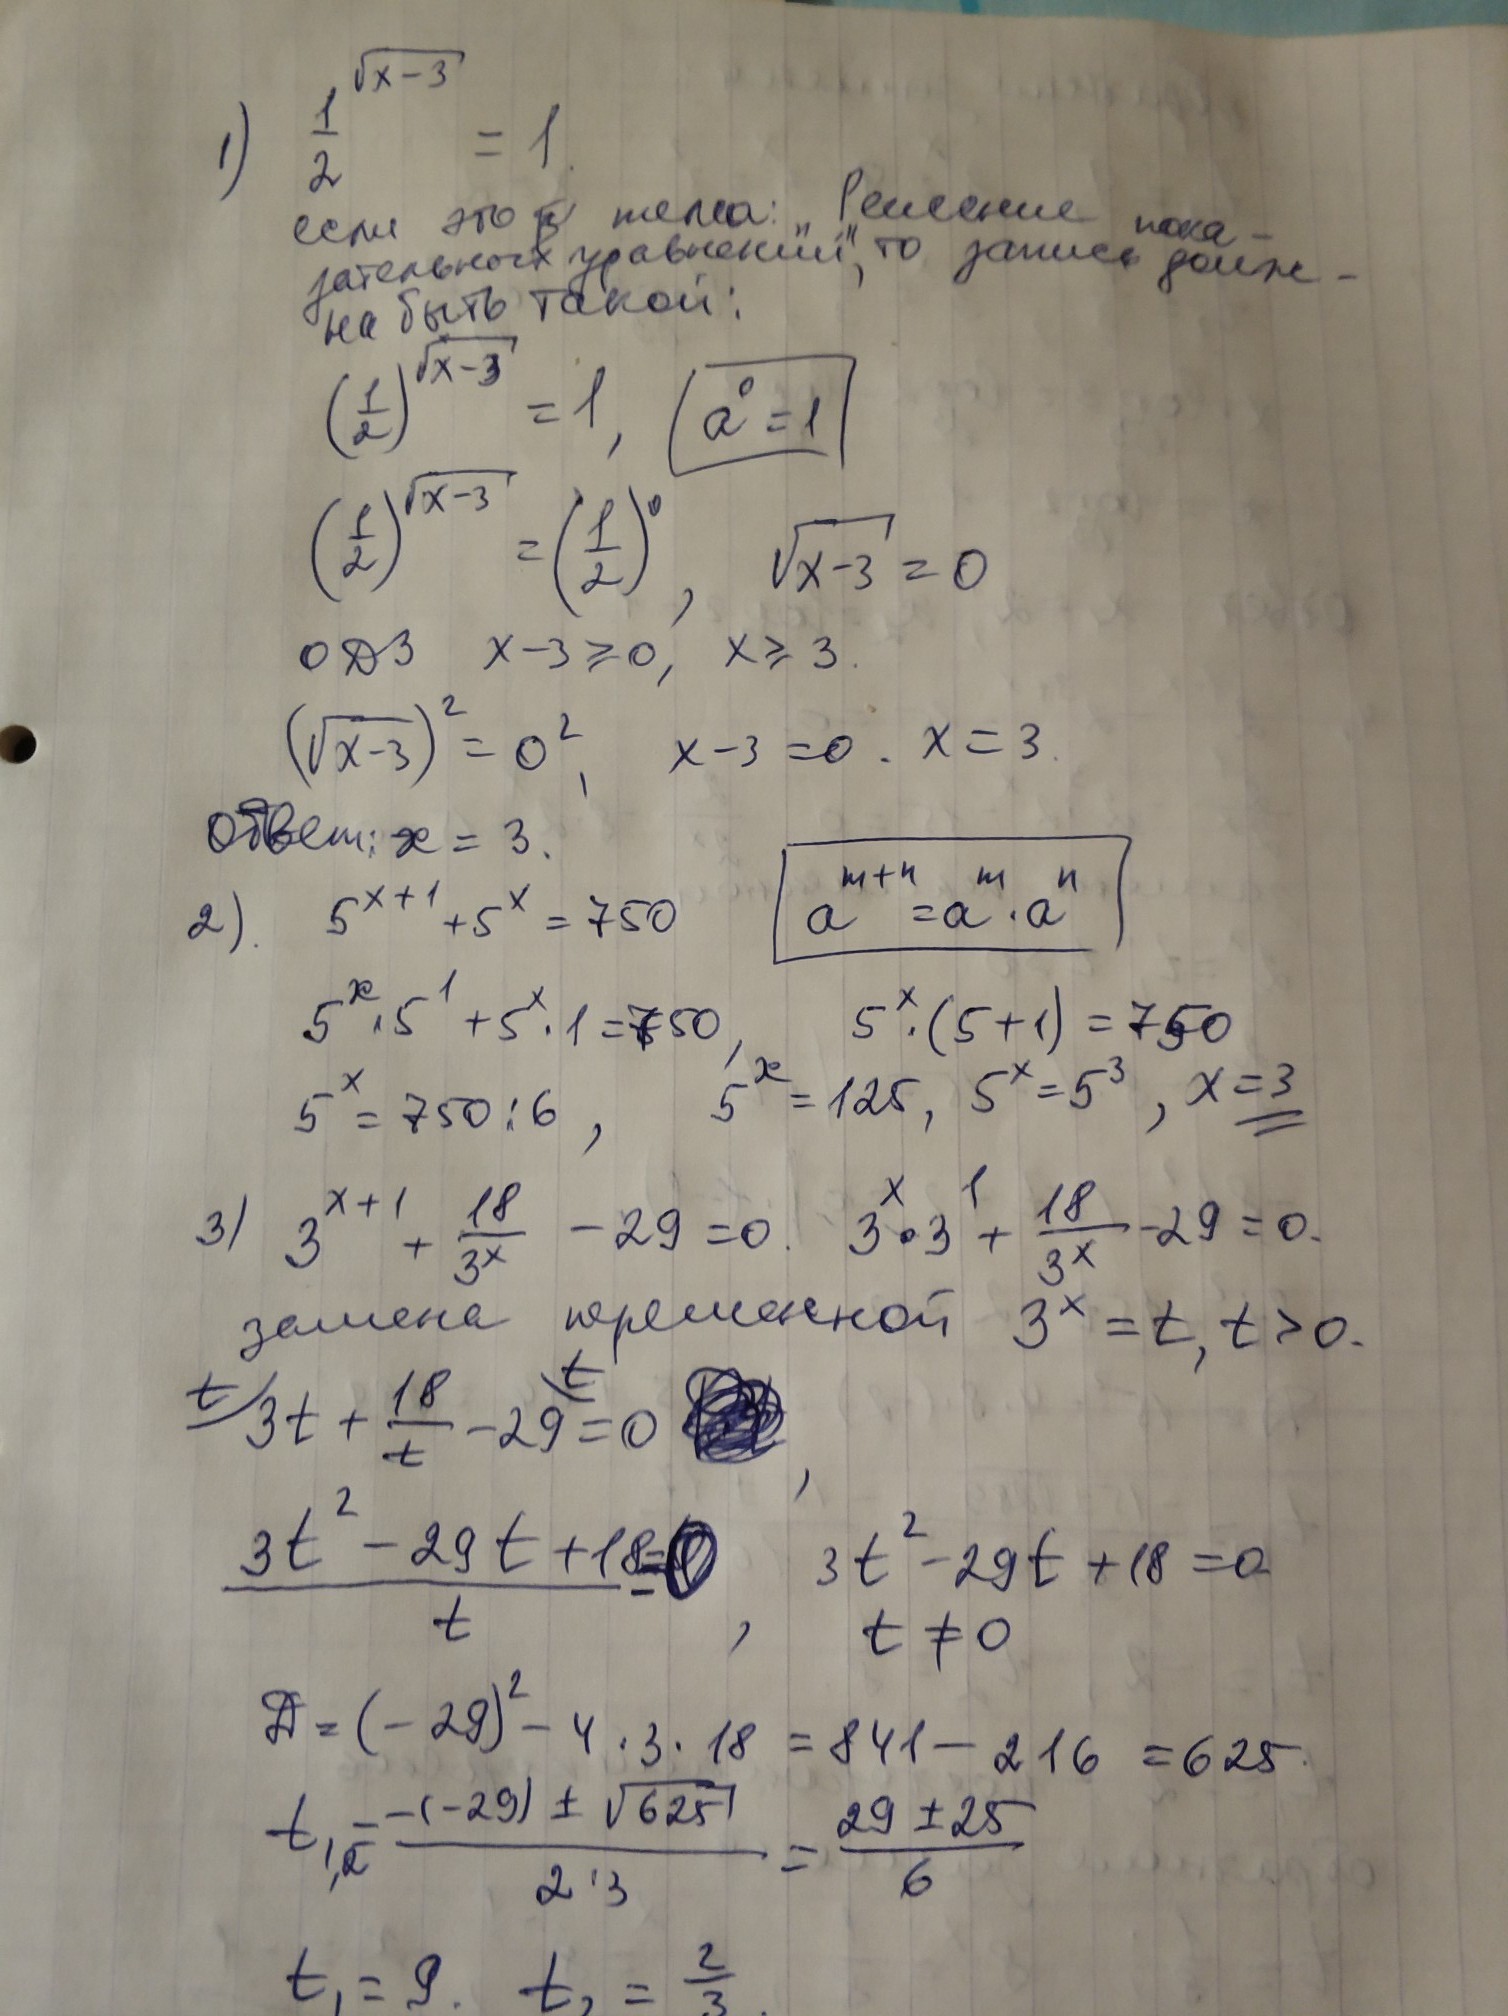 1) 1/2^√(x-3) = 1.
если это в тема: "Решение пока-
зательных уравнений", то запись долж-
на быть такой:
(1/2)^√(x-3) = 1, a^0 = 1
(1/2)^√(x-3) = (1/2)^0, √(x-3) = 0
ОДЗ x-3 ≥ 0, x ≥ 3.
(√(x-3))^2 = 0^2, x-3 = 0. x = 3.
Ответ: x = 3.
2). 5^(x+1) + 5^x = 750 a^(m+n) = a^m · a^n
5^x · 5^1 + 5^x · 1 = 750, 5^x · (5+1) = 750
5^x = 750 : 6, 5^x = 125, 5^x = 5^3, x = 3
3) 3^(x+1) + 18/3^x - 29 = 0. 3^x · 3^1 + 18/3^x - 29 = 0.
замена переменной 3^x = t, t > 0.
t/ 3t + 18/t - 29 \t = 0,
(3t^2 - 29t + 18)/t = 0, 3t^2 - 29t + 18 = 0
t ≠ 0
Д = (-29)^2 - 4 · 3 · 18 = 841 - 216 = 625.
t1,2 = (-(-29) ± √625)/(2·3) = (29 ± 25)/6
t1 = 9. t2 = 2/3.